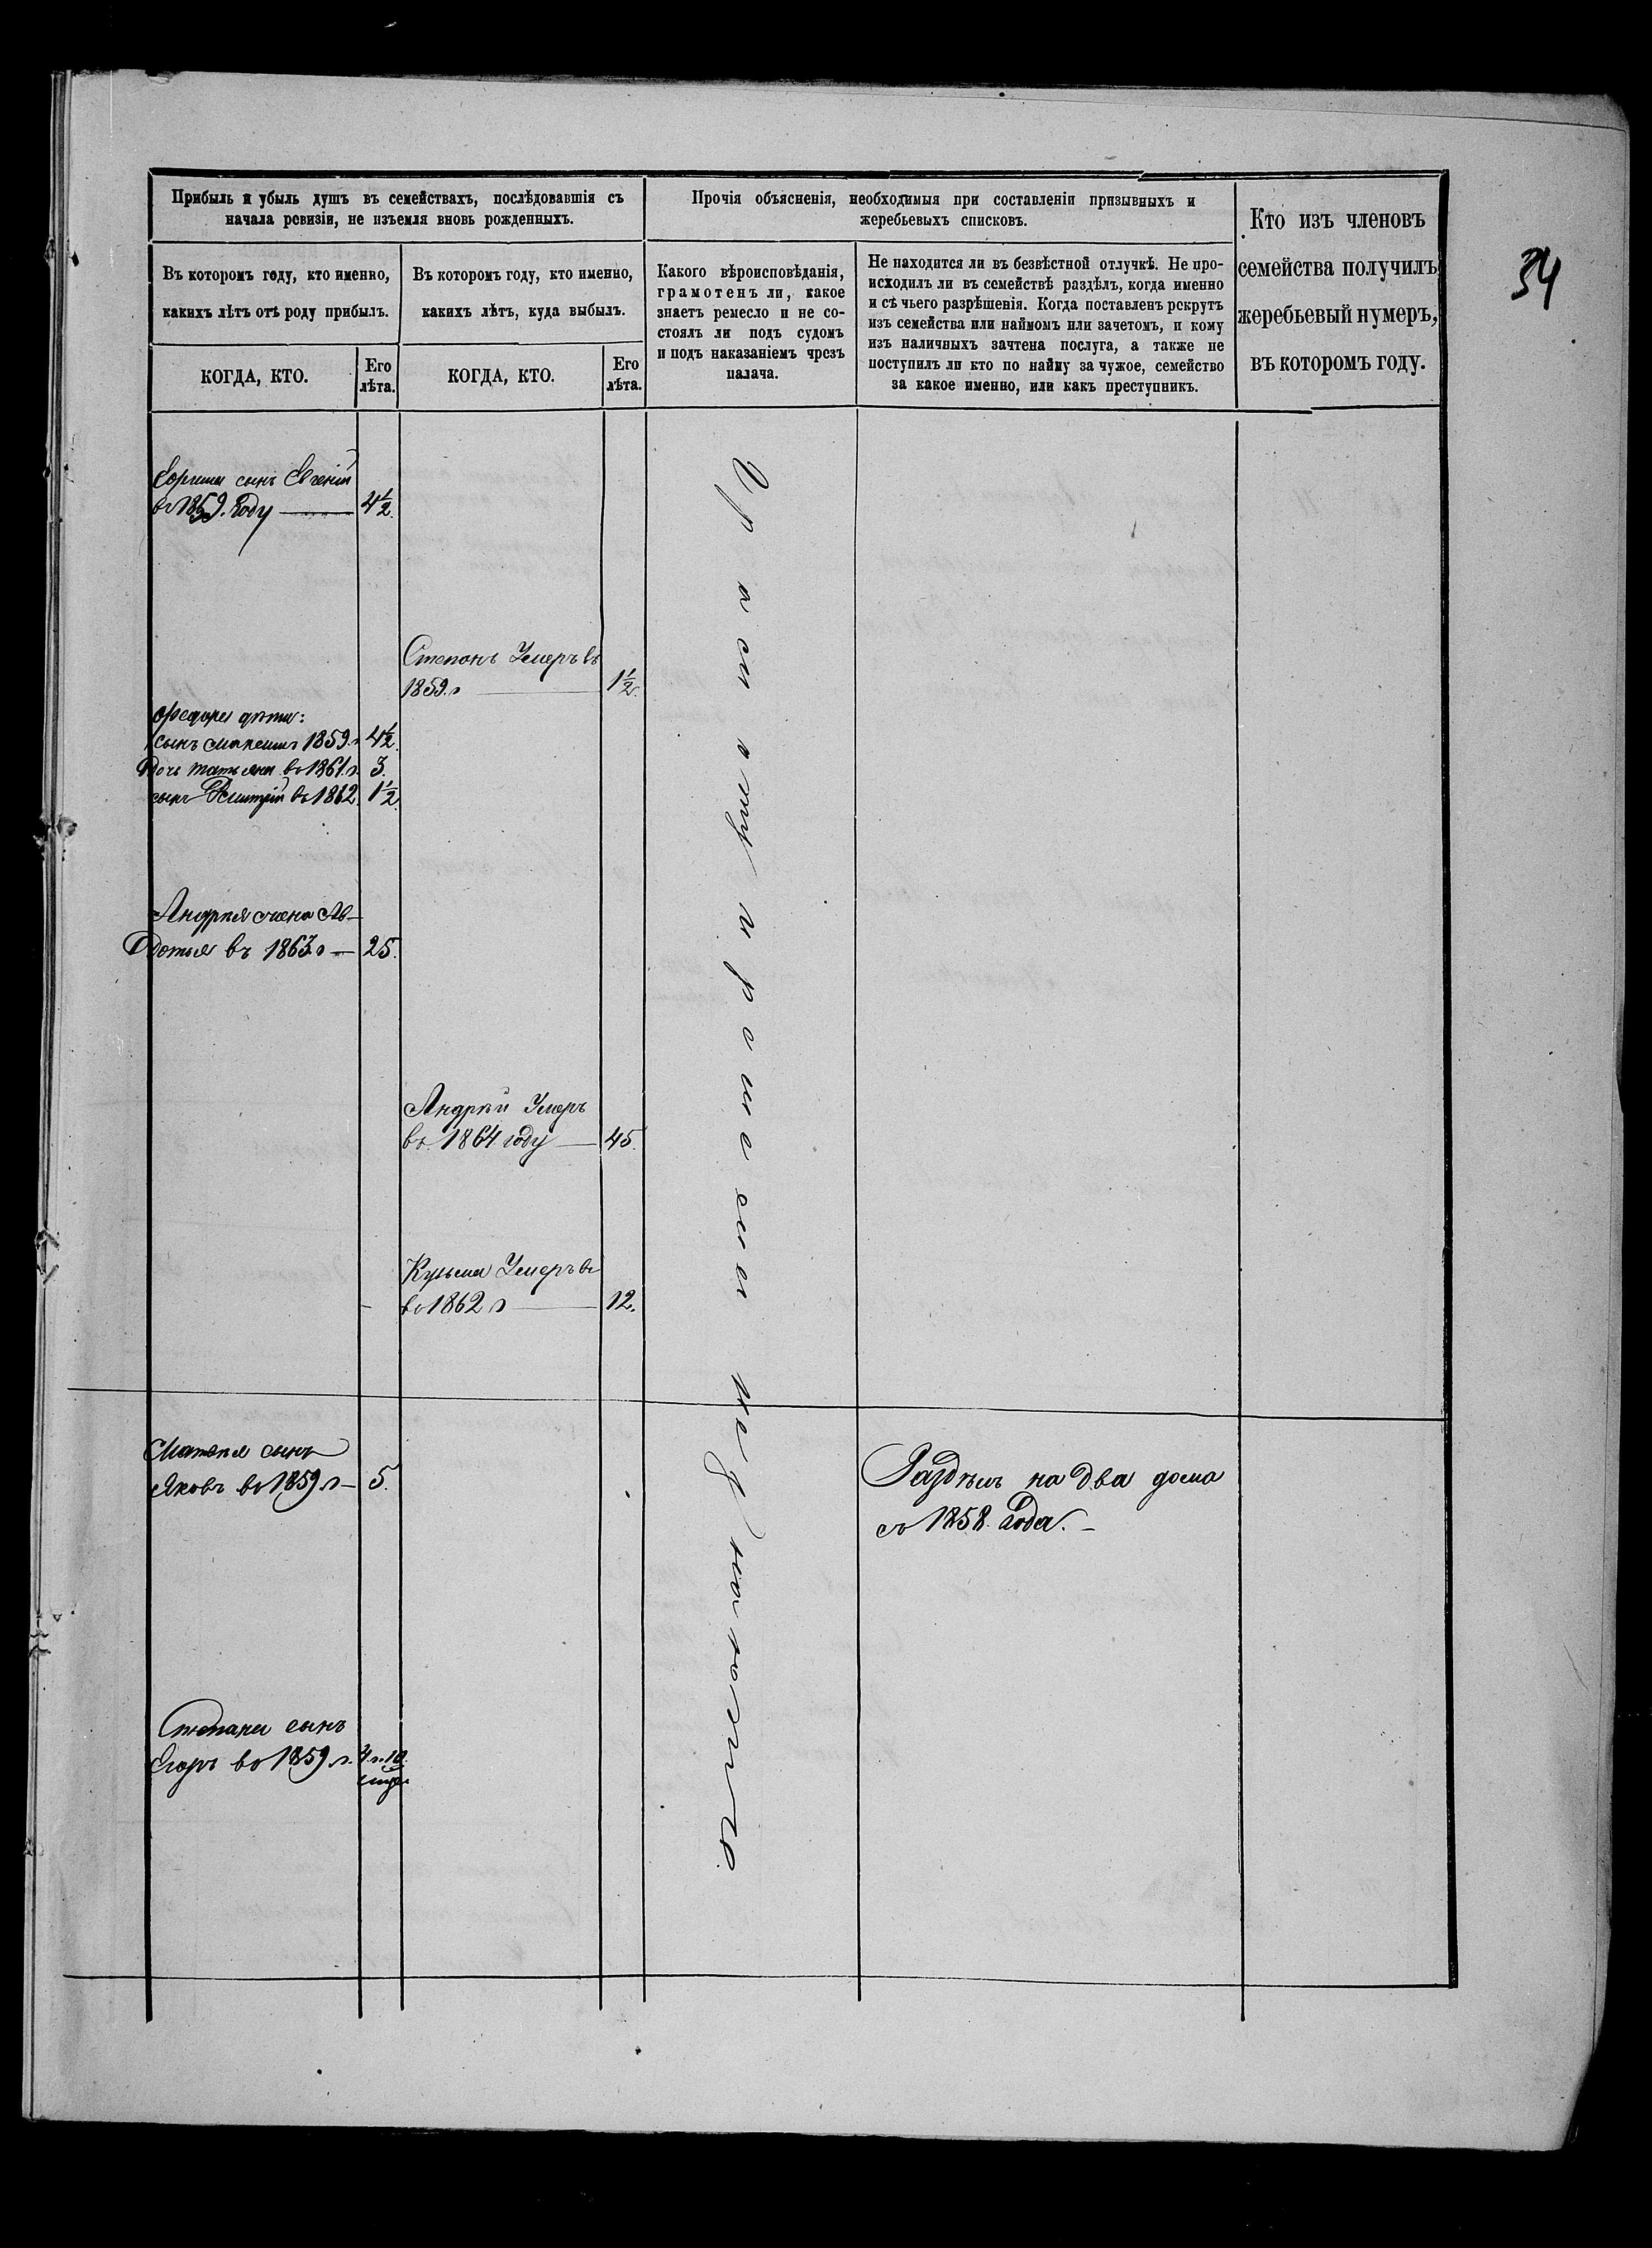 34
Прибыль и убыль душъ въ семействахъ, послѣдовавшія съ
начала ревизіи, не изъемля вновь рожденныхъ.
Прочія объясненія, необходимыя при составленіи призывныхъ и
жеребьевыхъ списковъ.
Кто изъ членовъ
семейства получилъ
жеребьевый нумеръ,
въ которомъ году.
Въ которомъ году, кто именно,
какихъ лѣтъ отъ роду прибылъ.
Въ которомъ году, кто именно,
какихъ лѣтъ, куда выбылъ.
Какого вѣроисповѣданія,
грамотенъ ли, какое
знаетъ ремесло и не со-
стоялъ ли подъ судомъ
и подъ наказаніемъ чрезъ
палача.
Не находится ли въ безвѣстной отлучкѣ. Не про-
исходилъ ли въ семействѣ раздѣлъ, когда именно
и съ чьего разрѣшенія. Когда поставленъ рекрутъ
изъ семейства или наймомъ или зачетомъ, и кому
изъ наличныхъ зачтена послуга, а также не
поступилъ ли кто по найму за чужое, семейство
за какое именно, или какъ преступникъ.
КОГДА, КТО.
Его
лѣта.
КОГДА, КТО.
Его
лѣта.
сынъ Евгеній
въ 1859. году 4½.
Степанъ Умеръ въ
1859. г 1½.
Федора дѣти:
сынъ Максимъ 1859. г 4½.
Дочь татьяна въ 1861 г. 3.
сынъ Дмитрій въ 1862 1½.
Андрея жена Ав-
дотья въ 1863 г 25.
Андрѣй Умеръ
въ 1864 году 45.
Кузьма Умеръ въ
въ 1862 г 12.
Матвѣя сынъ
Яковъ въ 1859 г 5.
Раздѣлъ на два дома
съ 1858. года.
Степана сынъ
Егоръ въ 1859 г. 4 г. 10